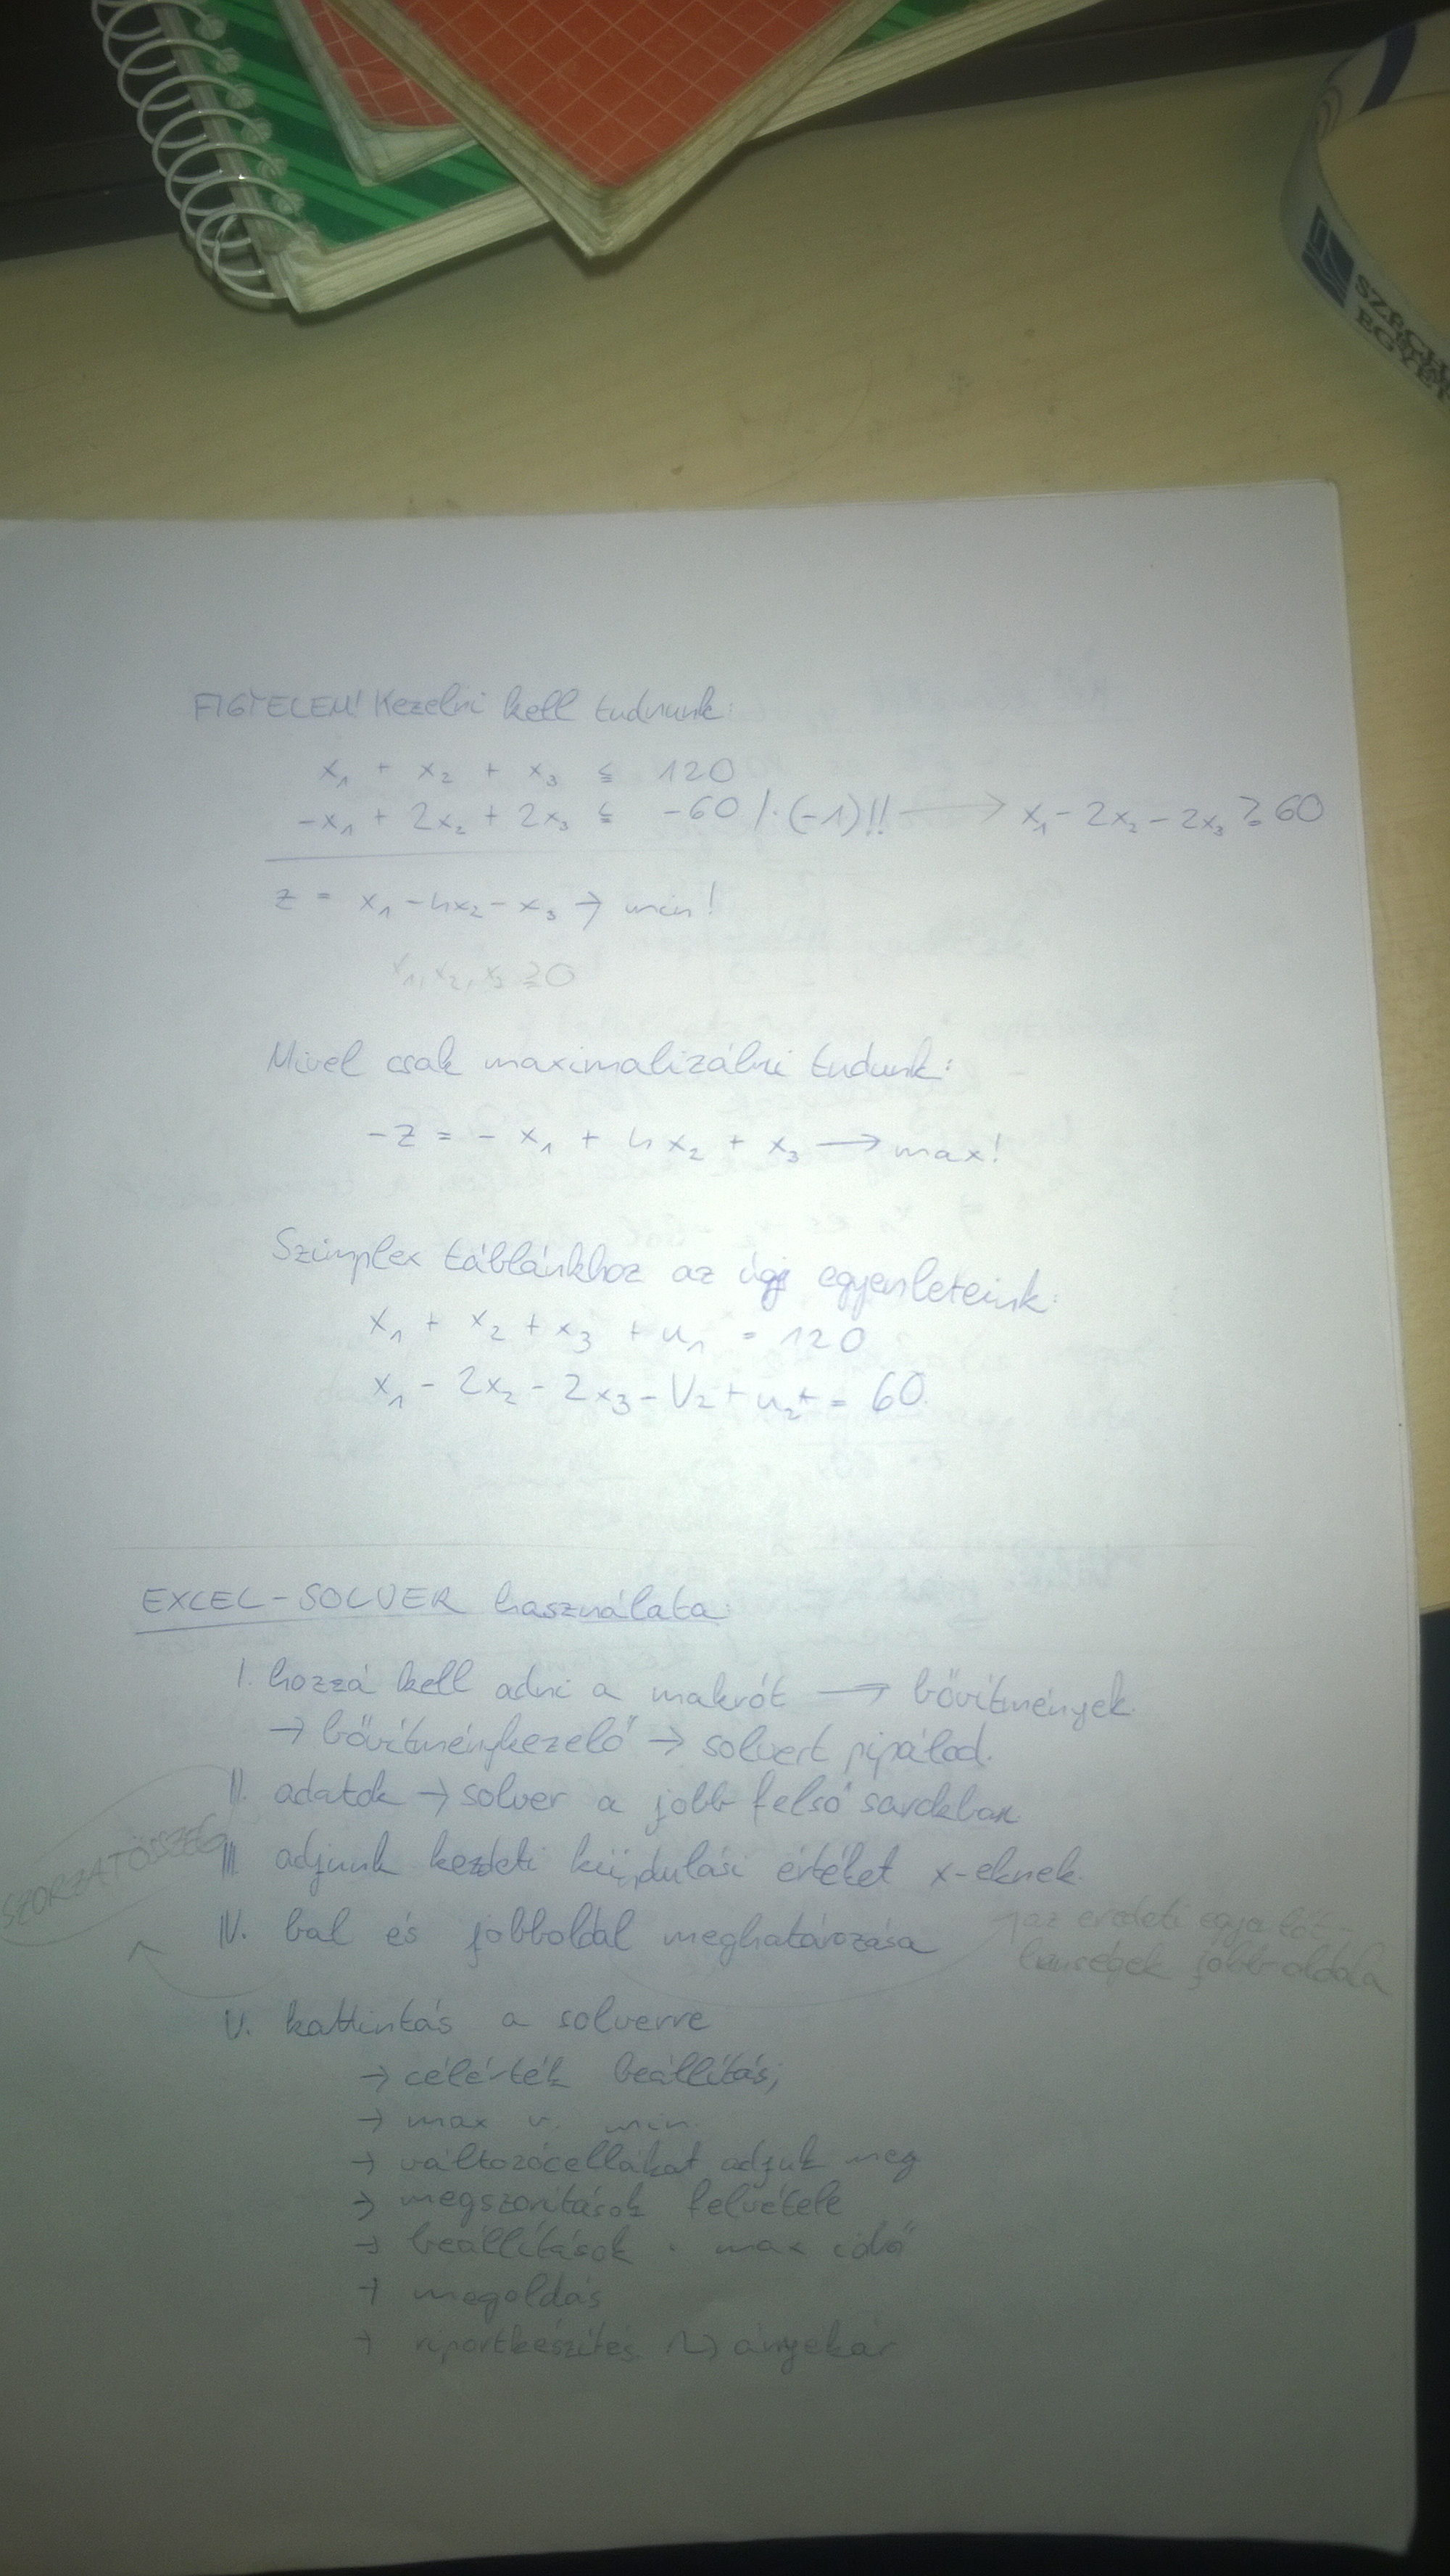 SZÉCHE
EGYET
FIGYELEM! Kezelni kell tudnunk:
x₁ + x₂ + x₃ ≦ 120
-x₁ + 2x₂ + 2x₃ ≦ -60 /·(-1)!! → x₁ - 2x₂ - 2x₃ ≧ 60
z = x₁ - 4x₂ - x₃ → min!
x₁, x₂, x₃ ≧ 0
Mivel csak maximalizálni tudunk:
-z = - x₁ + 4x₂ + x₃ → max!
Szimplex táblánkhoz az új egyenleteink:
x₁ + x₂ + x₃ + u₁ = 120
x₁ - 2x₂ - 2x₃ - v₂ + u₂* = 60.
EXCEL-SOLVER használata:
I. hozzá kell adni a makrót → bővítmények
→ bővítménykezelő → solvert pipálod.
II. adatok → solver a jobb felső sarokban
SZORZATÖSSZEG
III. adjunk kezdeti kiindulási értéket x-eknek
IV. bal és jobboldal meghatározása
az eredeti
jobb oldala
V. kattintás a solverre
→ célérték beállítás;
→ max v. min
→ változócellákat adjuk meg
→ megszorítások felvétele
→ beállítások · max idő
→ megoldás
→ riportkészítés árnyékár